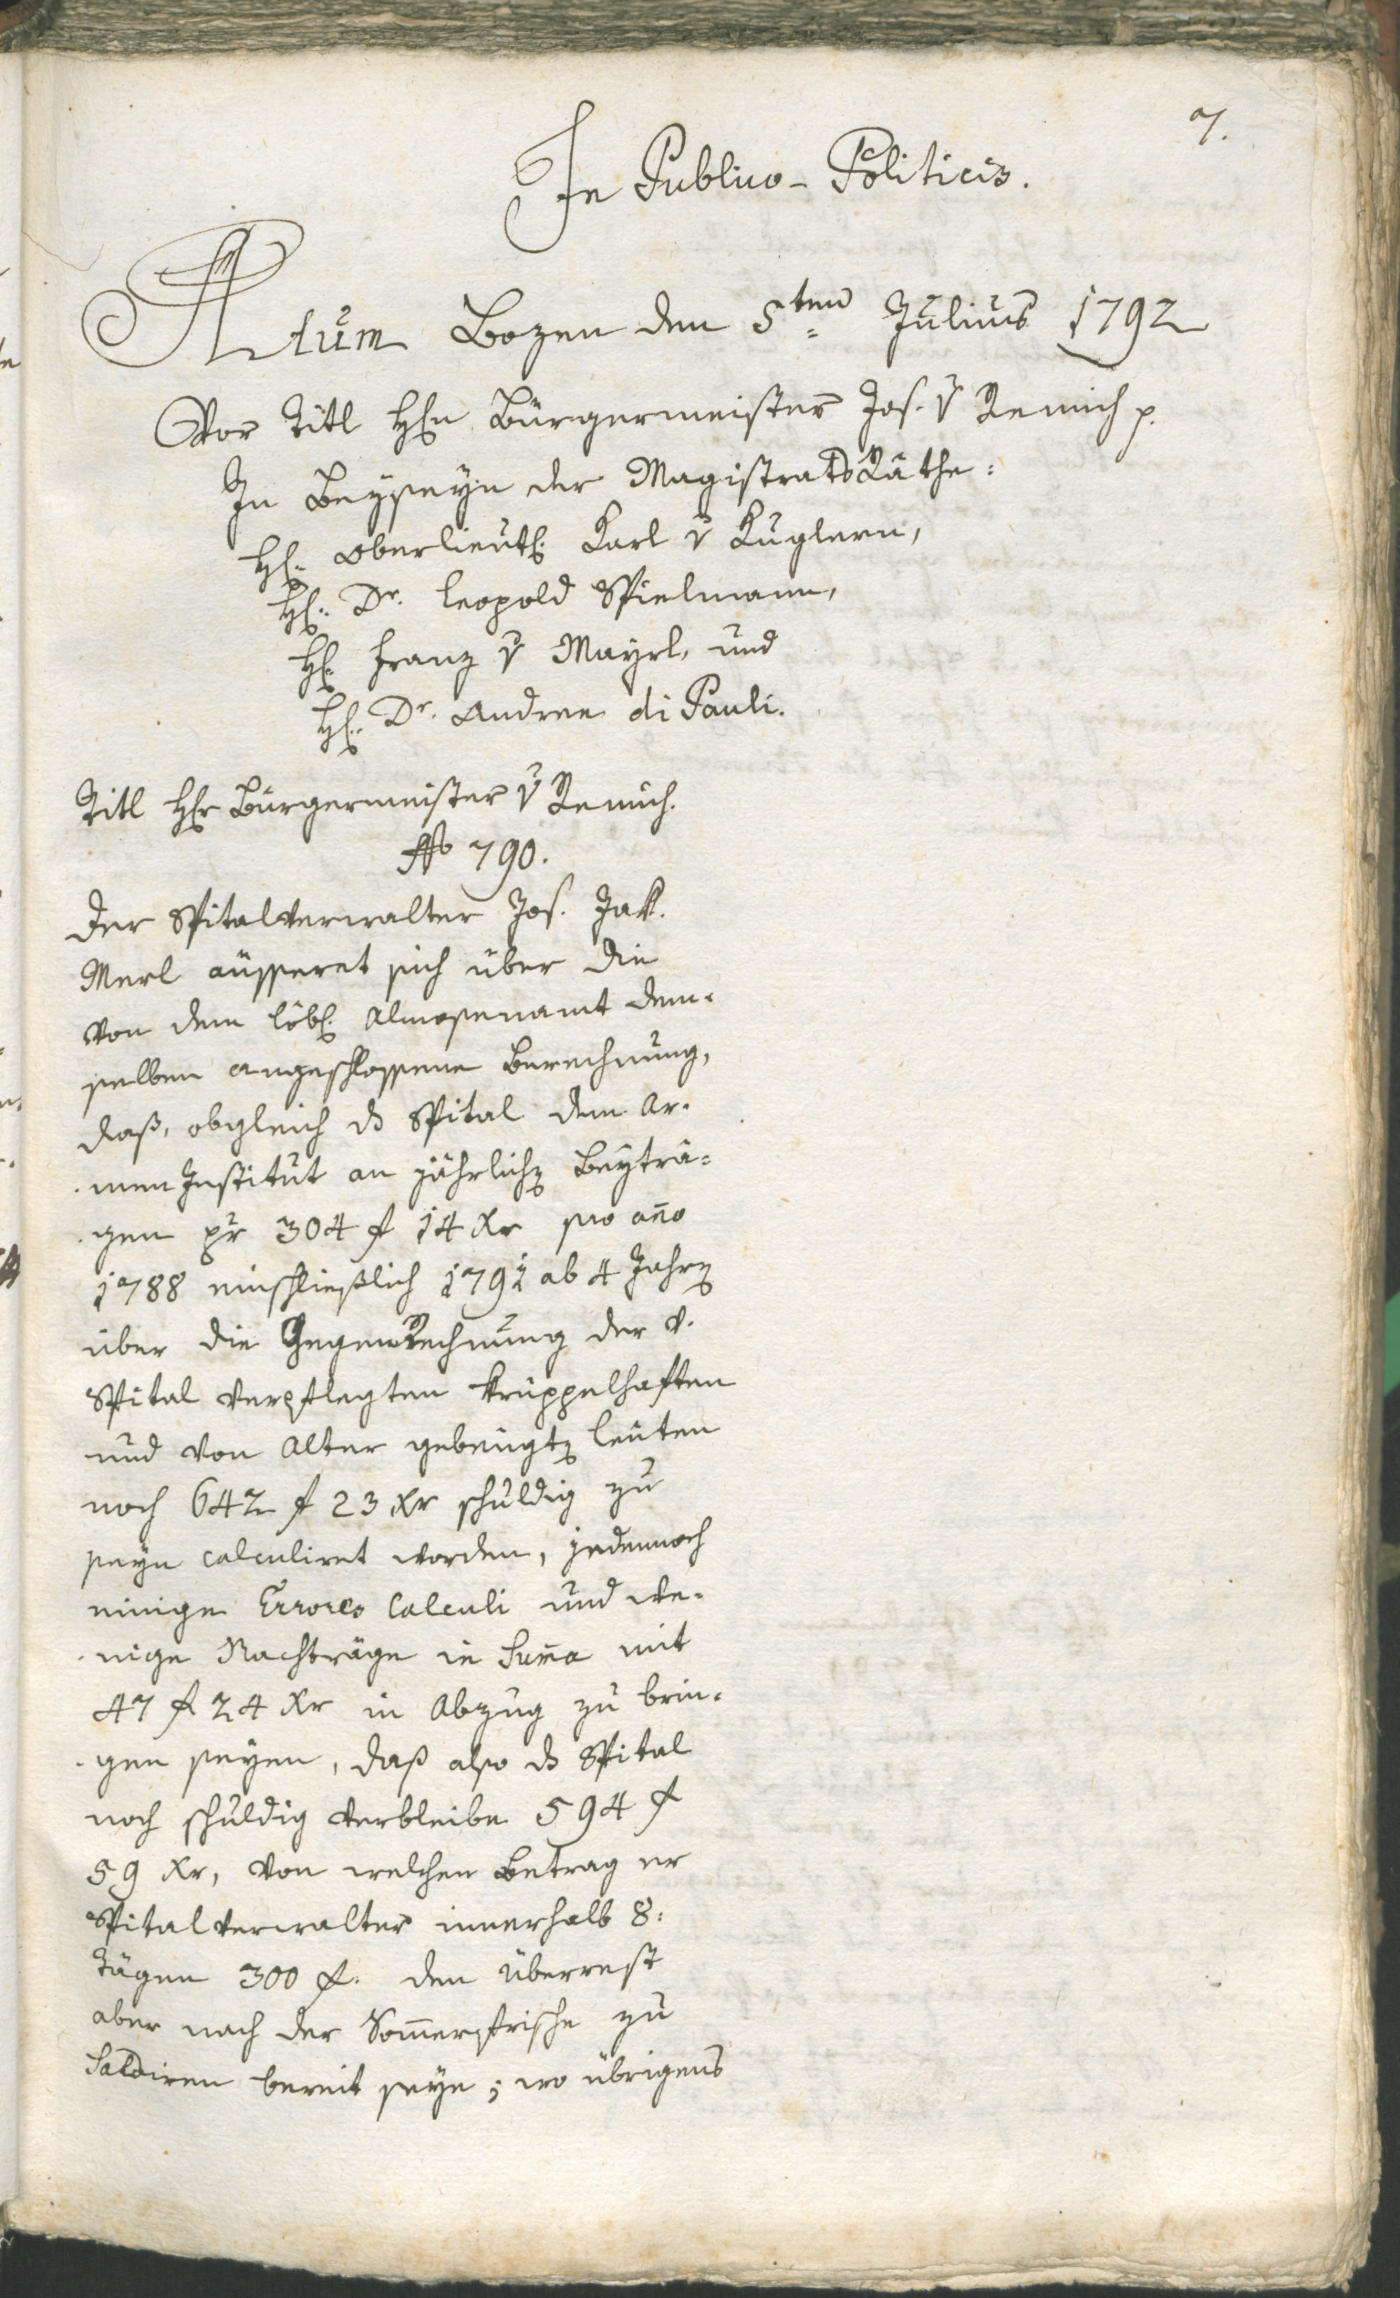 7.
In Publico-Politicis.
Actum Bozen den 5ten Julius 1792
Vor Titl Hℓn Bürgermeister Jos. v Remich p.
In Beyseyn der MagistratsRäthe:
Hℓ. Oberlieutℓ. Karl v Kuglern,
Hℓ. Dr. Leopold Spielmann,
Hℓ. Franz v Mayrl, und
Hℓ. Dr. Andree di Pauli.
Titl Hℓr Bürgermeister v Remich.
No 790.
Der Spitalverwalter Jos. Jak.
Merl äusseret sich über die
von dem löbℓ. Almosenamt dem-
selben angeschlossene Berechnung,
daß, obgleich ds Spital dem Ar-
men Institut an jährlichen Beyträ-
gen pr 304 f 14 Xr pro año
1788 einschließlich 1791 ab 4 Jahren
über die GegenRechnung der v.
Spital verpflegten krüppelhaften
und von Alter gebeugten Leuten
noch 642 f 23 Xr schuldig zu
seyn calculiret worden, jedennoch
einige Errores Calculi und we-
nige Nachträge in Suma mit
47 f 24 Xr in Abzug zu brin-
gen seyen, daß also ds Spital
noch schuldig verbleibe 594 f
59 Xr, von welchen Betrag er
Spitalverwalter innerhalb 8:
Tägen 300 f. den Überrest
aber nach der Som̄erfrische zu
Saldiren bereit seye; wo übrigens